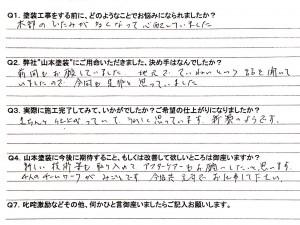 Q1. 塗装工事をする前に、どのようなことでお悩みになられましたか?
木部のいたみがひどくなって心配していました
Q2. 弊社"山本塗装"にご用命いただきました、決め手はなんでしたか?
前回もお願いしていました 地元で ていねいという 話を聞いて
いましたので 今回も是非と思っていました
Q3. 実際に施工完了してみて、いかがでしたか?ご希望の仕上がりになりましたか?
きちんと仕上がっていて うれしく思っています 新築のようです。
Q4. 山本塗装に今後に期待すること、もしくは改善して欲しいところは御座いますか?
新しい技術等も取り入れて アフターケアーもお願いしたいと思います
4人のチームワークが みごとです 今後も お仕事して下さい
Q7. 叱咤激励などその他、何かひと言御座いましたらご記入お願いします。